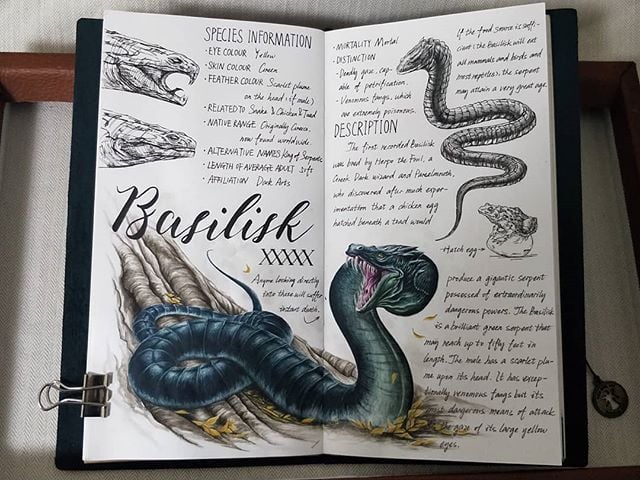 SPECIES INFORMATION
• EYE COLOUR Yellow
• SKIN COLOUR Green
• FEATHER COLOUR Scarlet plume
on the head (if male)
• RELATED TO Snake & Chicken & Toad
• NATIVE RANGE Originally Greece,
now found worldwide.
• ALTERNATIVE NAMES King of Serpents
• LENGTH OF AVERAGE ADULT 50ft
• AFFILIATION Dark Arts
Basilisk
XXXXX
Anyone looking directly
into these will suffer
instant death.
• MORTALITY Mortal
• DISTINCTION
- Deadly gaze, cap-
able of petrification.
- Venomous fangs, which
are extremely poisonous.
DESCRIPTION
The first recorded Basilisk
was bred by Herpo the Foul, a
Greek Dark wizard and Parselmouth,
who discovered after much exper-
imentation that a chicken egg
hatched beneath a toad would
If the food source is suffi-
cient (the Basilisk will eat
all mammals and birds and
most reptiles), the serpent
may attain a very great age.
Hatch egg
produce a gigantic serpent
possessed of extraordinarily
dangerous powers. The Basilisk
is a brilliant green serpent that
may reach up to fifty feet in
length. The male has a scarlet plu-
me upon its head. It has excep-
tionally venomous fangs but its
most dangerous means of attack
is the gaze of its large yellow
eyes.